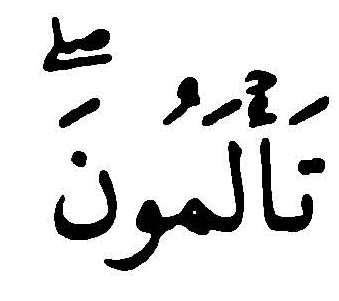 تَأْلَمُونَۖ